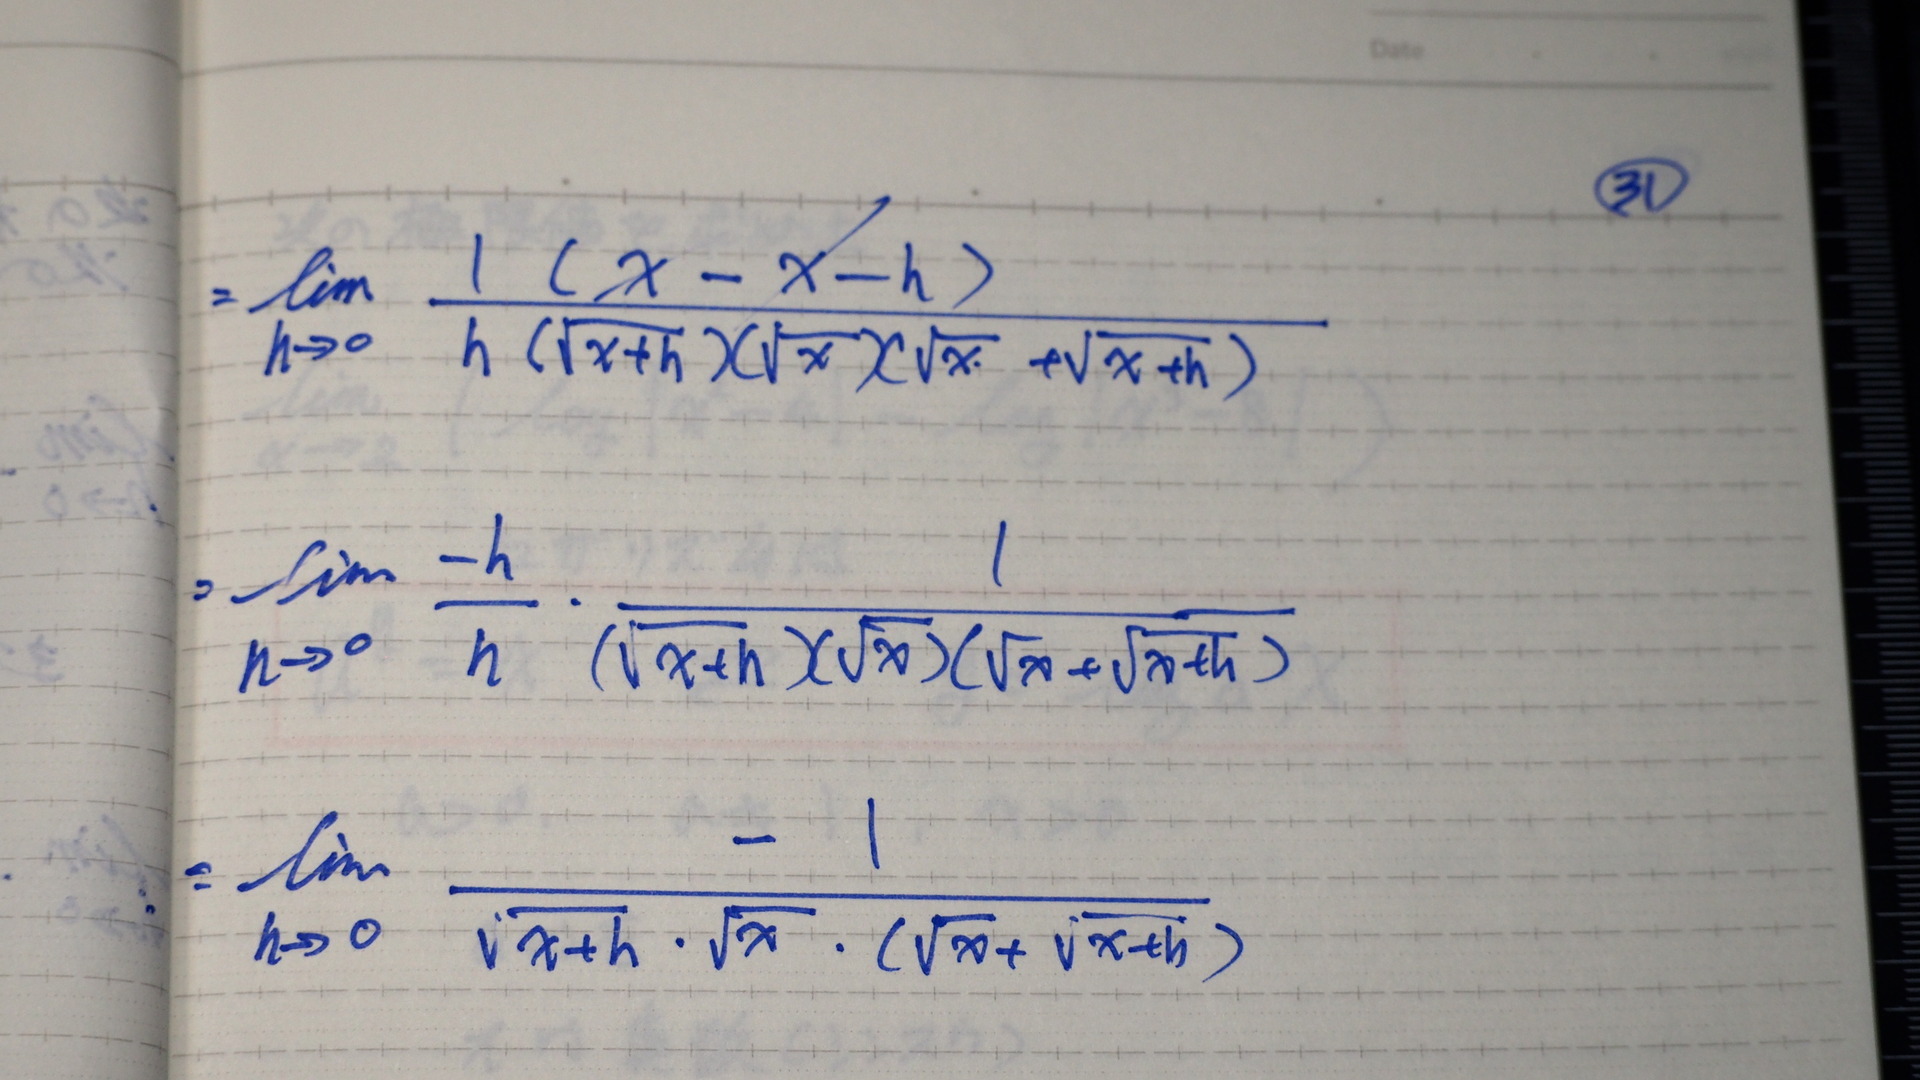 Date
31
= lim h→0 1 (x - x - h) / h (√x+h)(√x)(√x + √x+h)
= lim h→0 -h / h · 1 / (√x+h)(√x)(√x + √x+h)
= lim h→0 -1 / √x+h · √x · (√x + √x+h)